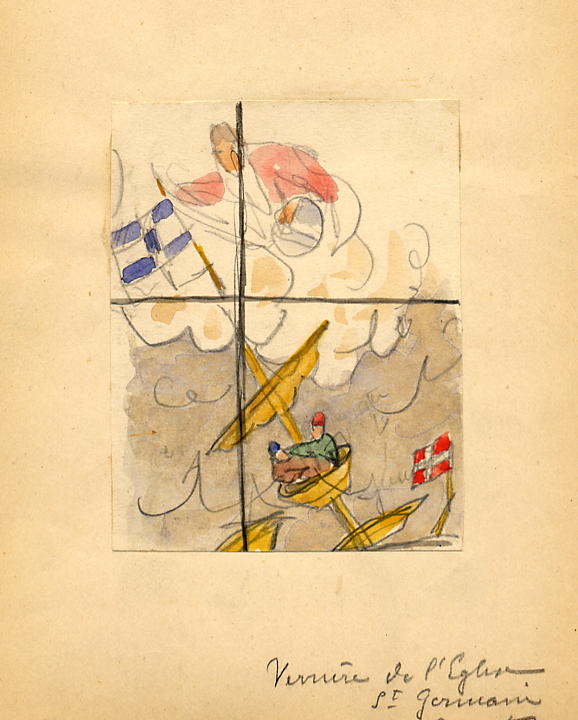 Verrière de l'Eglise
St Germain